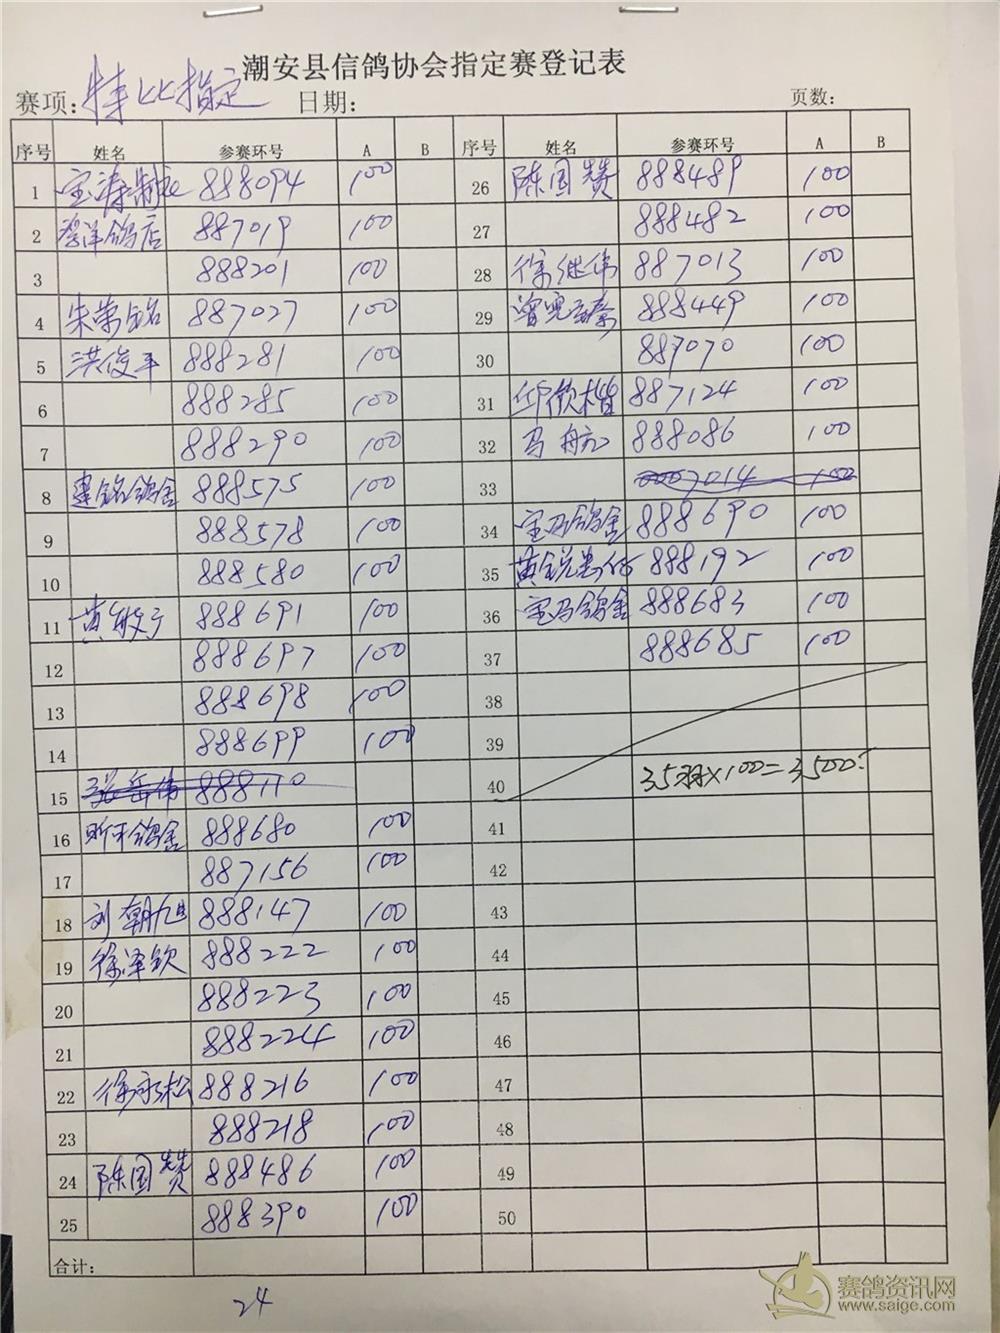 潮安县信鸽协会指定赛登记表
赛项: 特比指定 日期: 页数:
序号 姓名 参赛环号 A B 序号 姓名 参赛环号 A B
1 888094 100 26 陈国赞 888489 100
2 887019 100 27 888482 100
3 888201 100 28 徐继伟 887013 100
4 朱荣铭 887027 100 29 888449 100
5 洪俊平 888281 100 30 887070 100
6 888285 100 31 邱欣楷 887124 100
7 888290 100 32 马航 888086 100
8 建铭鸽舍 888575 100 33 7014 100
9 888578 100 34 宝马鸽舍 888690 100
10 888580 100 35 888192 100
11 黄敏 888691 100 36 宝马鸽舍 888683 100
12 888697 100 37 888685 100
13 888698 100 38
14 888699 100 39
15 张岳伟 888110 40 35羽×100=3500
16 昕平鸽舍 888680 100 41
17 887156 100 42
18 刘朝旭 888147 100 43
19 徐泽钦 888222 100 44
20 888223 100 45
21 888224 100 46
22 徐永松 888216 100 47
23 888218 100 48
24 陈国赞 888486 100 49
25 888390 100 50
合计:
24
赛鸽资讯网
www.saige.com